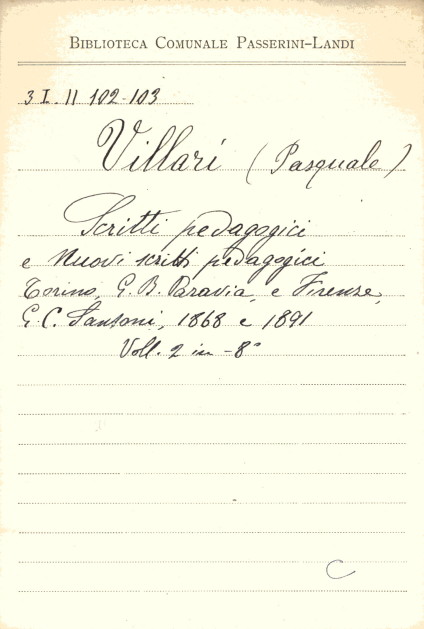 BIBLIOTECA COMUNALE PASSERINI-LANDI
3 I. II 102-103
Villari (Pasquale)
Scritti pedagogici
e Nuovi scritti pedagogici
Torino, G. B. Paravia, e Firenze,
G. C. Sansoni, 1868 e 1891
Voll. 2 in -8°
C